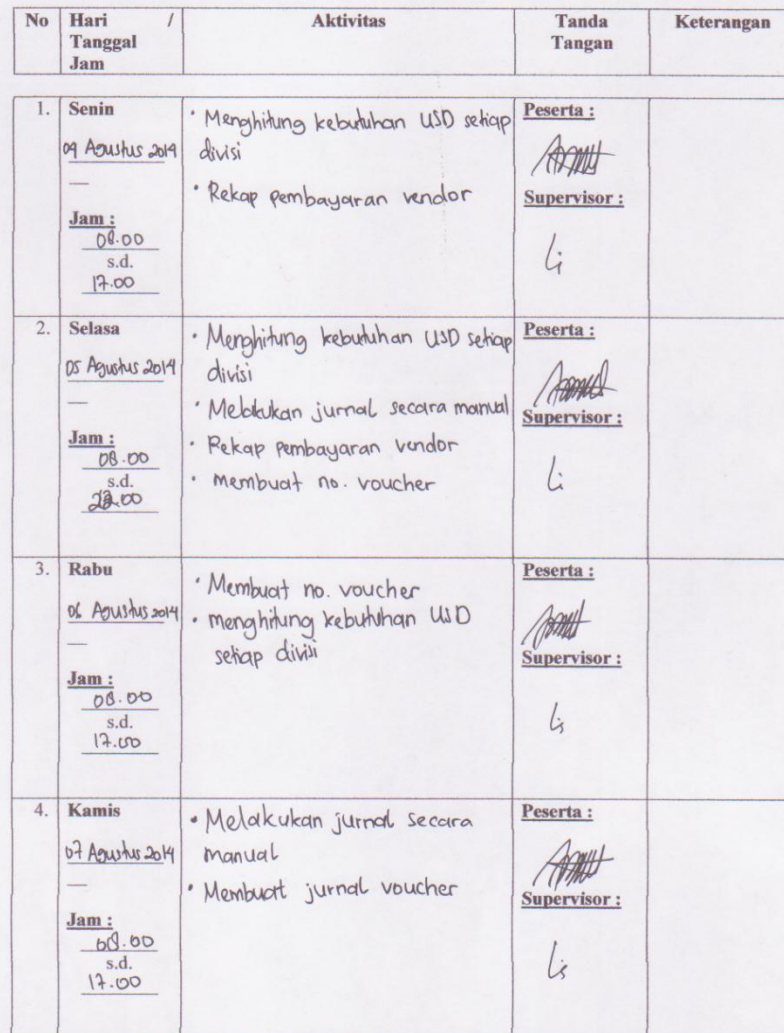 No Hari / Tanggal Jam Aktivitas Tanda Tangan Keterangan
1. Senin
04 Agustus 2014
Jam :
08.00
s.d.
17.00
• Menghitung kebutuhan USD setiap
divisi
• Rekap pembayaran vendor
Peserta :
Supervisor :
2. Selasa
05 Agustus 2014
Jam :
08.00
s.d.
• Menghitung kebutuhan USD setiap
divisi
• Melakukan jurnal secara manual
• Rekap pembayaran vendor
• membuat no. voucher
Peserta :
Supervisor :
3. Rabu
06 Agustus 2014
Jam :
08.00
s.d.
17.00
• Membuat no. voucher
• menghitung kebutuhan USD
setiap divisi
Peserta :
Supervisor :
4. Kamis
07 Agustus 2014
Jam :
08.00
s.d.
17.00
• Melakukan jurnal secara
manual
• Membuat jurnal voucher
Peserta :
Supervisor :